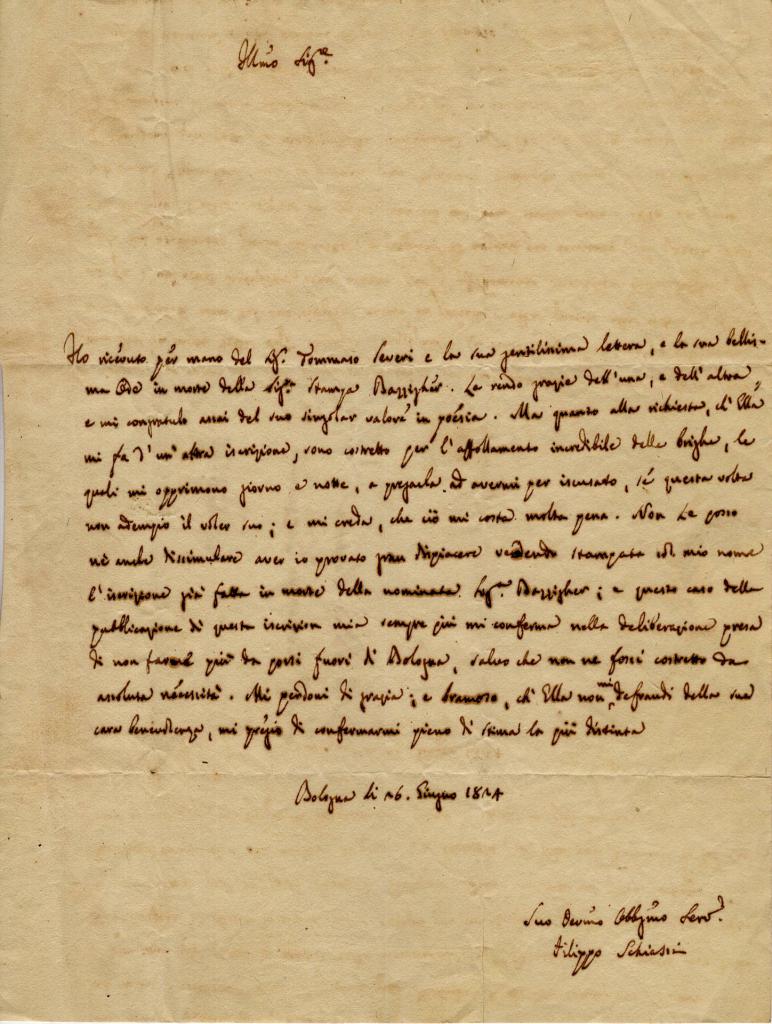 Illmo Sigre
Ho ricevuto per mano del Sigr. Tommaso Severi e la sua gentilissima lettera, e la sua bellis-
ma Ode in morte della Sigra Stampa Bazzigher. La rendo grazie dell'una, e dell'altra,
e mi congratulo assai del suo singolar valore in poesia. Ma quanto alla richiesta, ch'Ella
mi fa d'un'altra iscrizione, sono costretto per l'affollamento incredibile delle brighe, le
quali mi opprimono giorno e notte, a pregarla ad avermi per iscusato, se questa volta
non adempio il voler suo; e mi creda, che ciò mi costa molta pena. Non Le posso
nè anche dissimulare aver io provato gran dispiacere vedendo stampata col mio nome
l'iscrizione già fatta in morte della nominata Sigra Bazzigher; e questo caso della
pubblicazione di questa iscrizion mia sempre più mi conferma nella deliberazione presa
di non farne più da porsi fuori di Bologna, salvo che non ne fossi costretto da
assoluta necessità. Mi perdoni di grazia; e bramoso, ch'Ella non mi defraudi della sua
cara benevolenza, mi pregio di confermarmi pieno di stima la più distinta
Bologna li 26. Giugno 1824
Suo Devmo Obblgmo Servd.
Filippo Schiassi